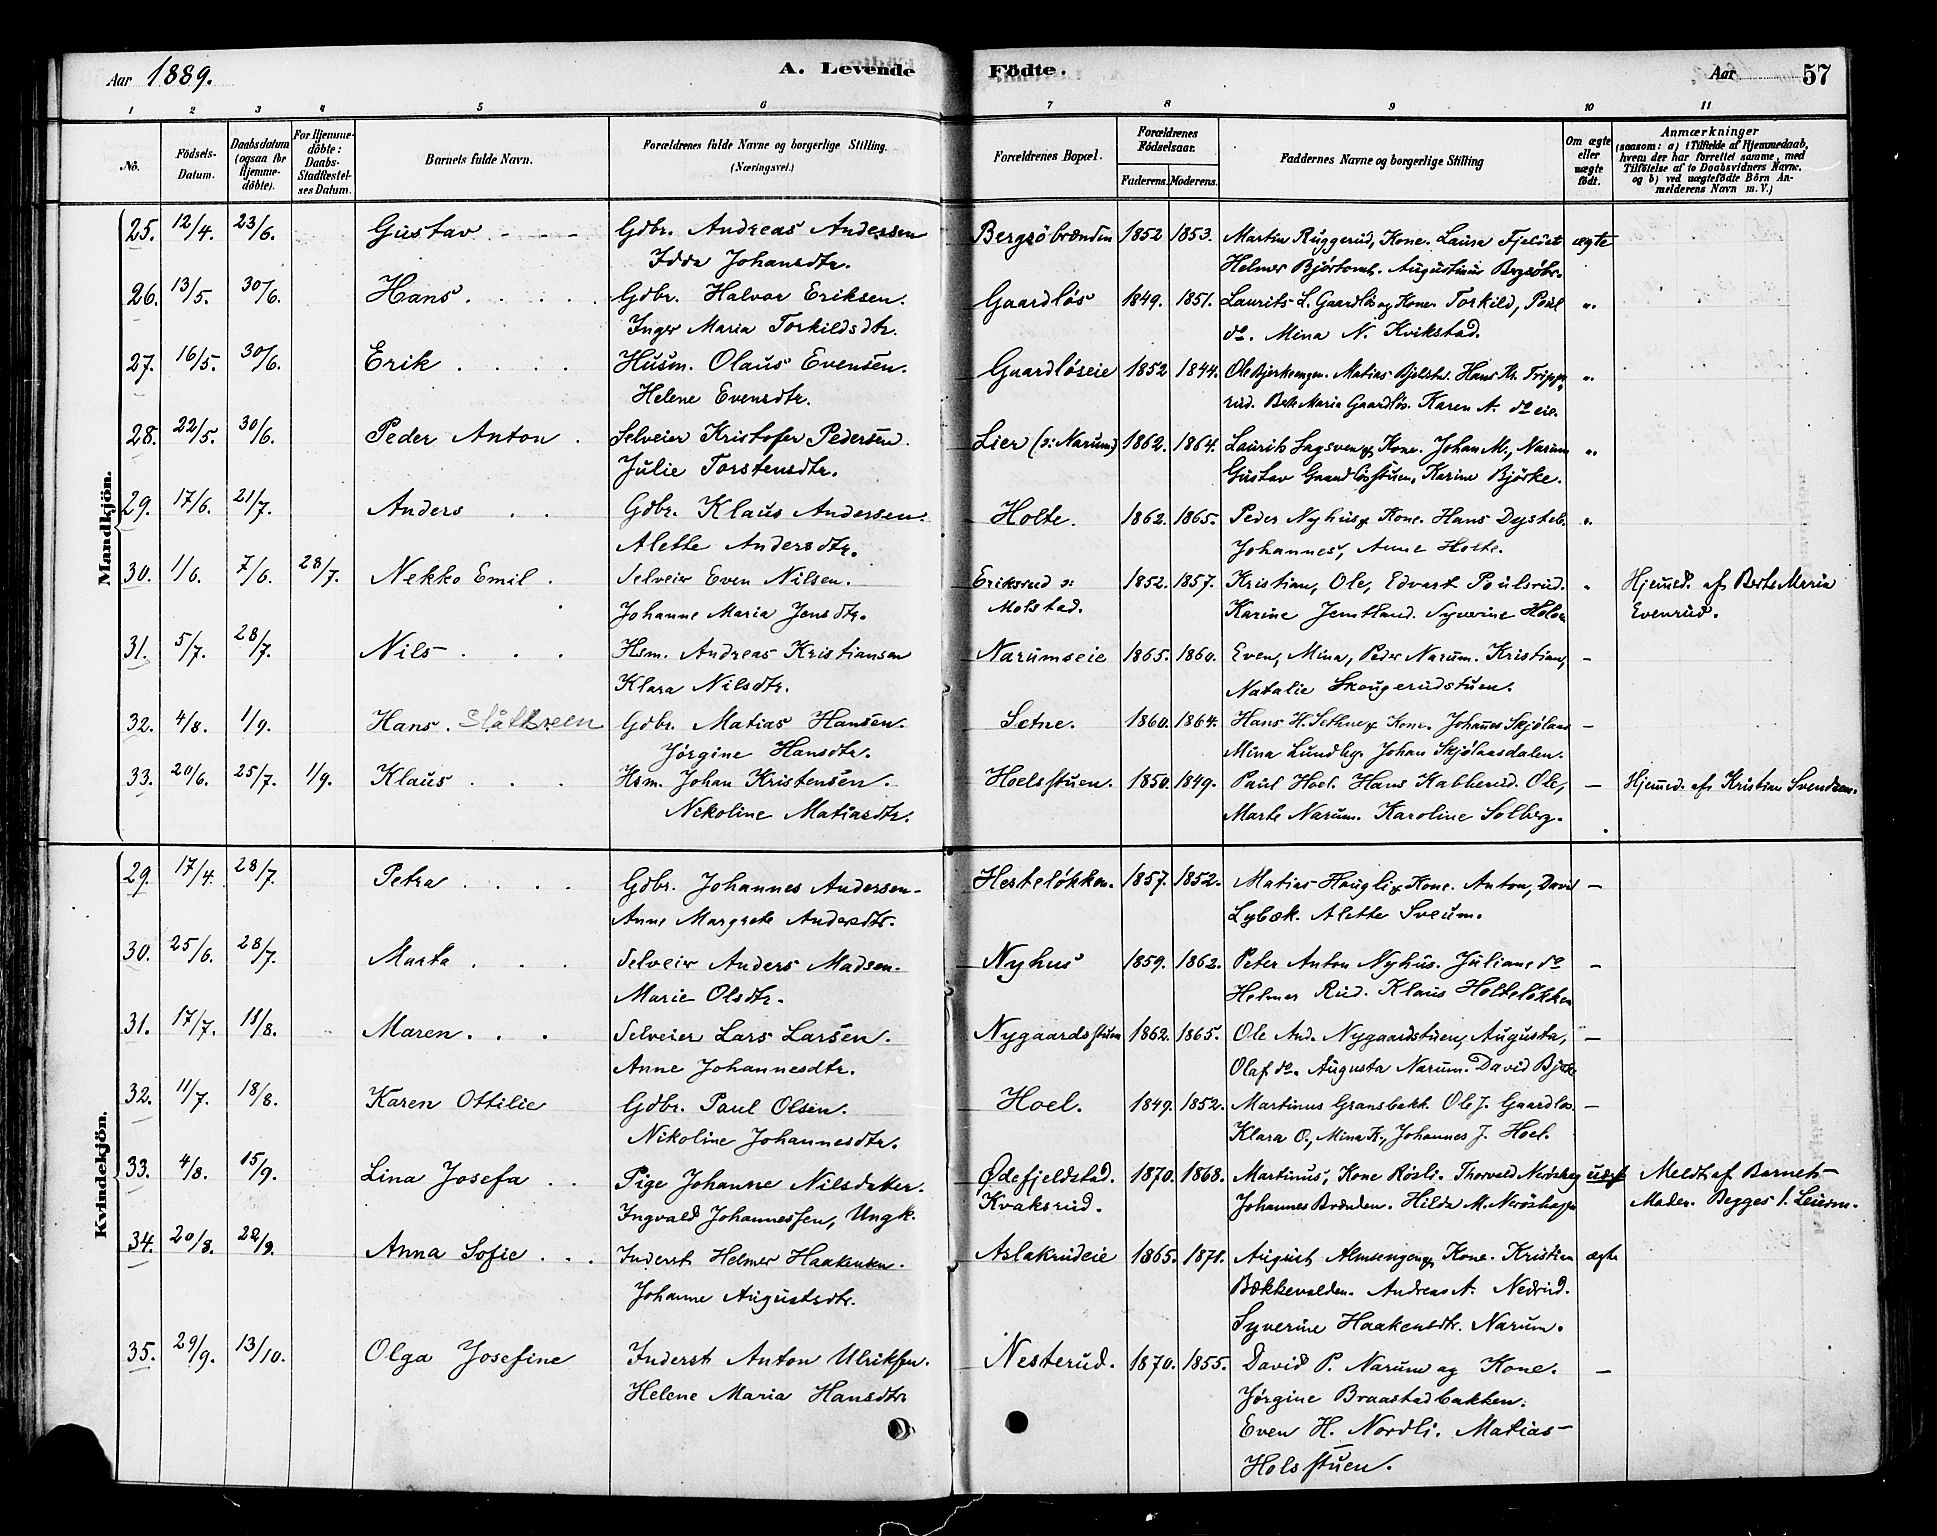 Aar 1889. A. Levende Födte. Aar 57
1 2 3 4 5 6 7 8 9 10 11
No. Födsels-Datum. Daabsdatum (ogsaa for Hjemme-döbte). For Hjemme-döbte: Daabs-Stadfæstelses Datum. Barnets fulde Navn. Forældrenes fulde Navne og borgerlige Stilling. (Næringsvei.) Forældrenes Bopæl. Forældrenes Födselsaar. Faderens. Moderens. Faddernes Navne og borgerlige Stilling Om ægte eller uægte født. Anmærkninger (saasom: a) i Tilfælde af Hjemmedaab, hvem der har forrettet samme, med Tilföielse af to Daabsvidners Navne, og b) ved uægtefödte Börn Anmelderens Navn m. V.)
Mandkjön.
25. 12/4. 23/6. Gustav Gdbr. Andreas Andersen Bergsöbrænden 1852 1853. Martin Ruggerud, Kone. Laura Fjeldet ægte
Idda Johansdtr. Helmer Augustinus Bergsöbr.
26. 13/5. 30/6. Hans Gdbr. Halvor Eriksen. Gaardlös 1849. 1851. Laurits L. Gaardlös og Kone. Torkild, Poul "
Inger Maria Torkildsdtr. do. Mina N. Kvikstad.
27. 16/5. 30/6. Erik Husm. Olaus Evensen. Gaardlöseie 1852 1844. Ole Bjerkengen. Matias Hans Kr. Tripp "
Helene Evensdtr. rud. Maria Gaardlös. Karen A. do eie.
28. 22/5. 30/6. Peder Anton Selveier Kristofer Pedersen. Lier (o: Narum) 1862. 1864. Laurits og Kone. Johan M., Narum "
Julie Torstensdtr. Gustav Gaardlösstuen, Karine Björke.
29. 17/6. 21/7. Anders Gdbr. Klaus Andersen. Holte. 1862. 1865. Peder Nyhus & Kone. Hans Dysteb. "
Alette Andersdtr. Johannes, Anne Holte.
30. 1/6. 7/6. 28/7. Nekko Emil Selveier Even Nilsen. Eriksrud o: 1852. 1857. Kristian, Ole, Edvart Poulsrud. " Hjemmed. af Berte Maria
Johanne Maria Jensdtr. Molstad. Karine Jemtland. Syverine Holm Evenrud.
31. 5/7. 28/7. Nils Hsm. Andreas Kristiansen Narumseie 1865. 1860. Even, Mina, Peder Narum. Kristian, –
Klara Nilsdtr. Natalie Skougerudstuen.
32. 4/8. 1/9. Hans. Slåttsveen Gdbr. Matias Hansen. Setne. 1860. 1864. Hans H. Sethne & Kone. Johannes Skjölaas –
Jörgine Hansdtr. Mina Lundby. Johan Skjölaasdalen.
33. 20/6. 25/7. 1/9. Klaus Hsm. Johan Kristensen. Hoelsstuen. 1850. 1849. Paul Hoel. Hans Kabberud. Ole, – Hjemmed. af Kristian Svendsen.
Nikoline Matiasdtr. Marte Narum. Karoline Solberg.
Kvindekjön.
29. 17/4. 28/7. Petra Gdbr. Johannes Andersen. Hestelökken. 1857. 1852. Matias Haugli & Kone. Anton, David –
Anne Margrete Andersdtr. Lybæk. Alette Sveum.
30. 25/6. 28/7. Marta Selveier Anders Madsen. Nyhus 1859. 1862. Peter Anton Nyhus. Juliane do –
Marie Olsdtr. Helmer Rud. Klaus Holtelökken
31. 17/7. 18/8. Maren Selveier Lars Larsen. Nygaardsstuen 1862. 1865. Ole And. Nygaardstuen, Augusta, –
Anne Johannesdtr. Olaf do. Augusta Narum. David
32. 11/7. 18/8. Karen Ottilie Gdbr. Paul Olsen. Hoel. 1849. 1852. Martinus Gransbakk. Ole J. Gaardlös –
Nikoline Johannesdtr. Klara O., Mina K., Johannes J. Hoel.
33. 4/8. 15/9. Lina Josefa Pige Johanne Nilsdatter. Ødefjeldstad. 1870. 1868. Martinus, Kone Rösli. Thorvald uægt Meldt af Barnets
Ingvald Johannessen, Ungk. Kvaksrud. Johannes Brænden. Hilda M. Moder. Begges 1. Leierm.
34. 20/8. 22/9. Anna Sofie Inderst Helmer Haakensen. Aslakrudeie 1865. 1871. August Almsengen & Kone. Kristian ægte
Johanne Augustsdtr. Bækkevolden. Andreas A. Nedrud.
Syverine Haakensdtr. Narum.
35. 29/9. 13/10. Olga Josefine Inderst Anton Ulriksen. Nesterud. 1870. 1855. David P. Narum og Kone. –
Helene Maria Hansdtr. Jörgine Braastadbakken.
Even H. Nordli. Matias
Holsstuen.